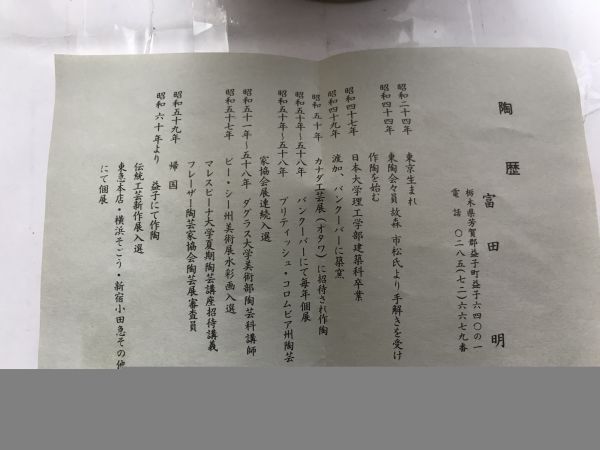 陶歴
富田明
栃木県芳賀郡益子町益子六四〇の一
電話 〇二八五(七二)六六七九番
昭和二十四年 東京生まれ
昭和四十四年 東陶会々員故森市松氏より手解きを受け
作陶を始む
昭和四十七年 日本大学理工学部建築科卒業
昭和四十九年 渡加、バンクーバーに築窯
昭和五十年 カナダ工芸展(オタワ)に招待され作陶
昭和五十年~五十八年 バンクーバーにて毎年個展
昭和五十年~五十八年 ブリティッシュ・コロムビア州陶芸
家協会展連続入選
昭和五十一年~五十八年 ダグラス大学美術部陶芸科講師
昭和五十七年 ビー・シー州美術展水彩画入選
マレスピーナ大学夏期陶芸講座招待講義
フレーザー陶芸家協会陶芸展審査員
昭和五十九年 帰国
昭和六十年より 益子にて作陶
伝統工芸新作展入選
東急本店・横浜そごう・新宿小田急その他
にて個展